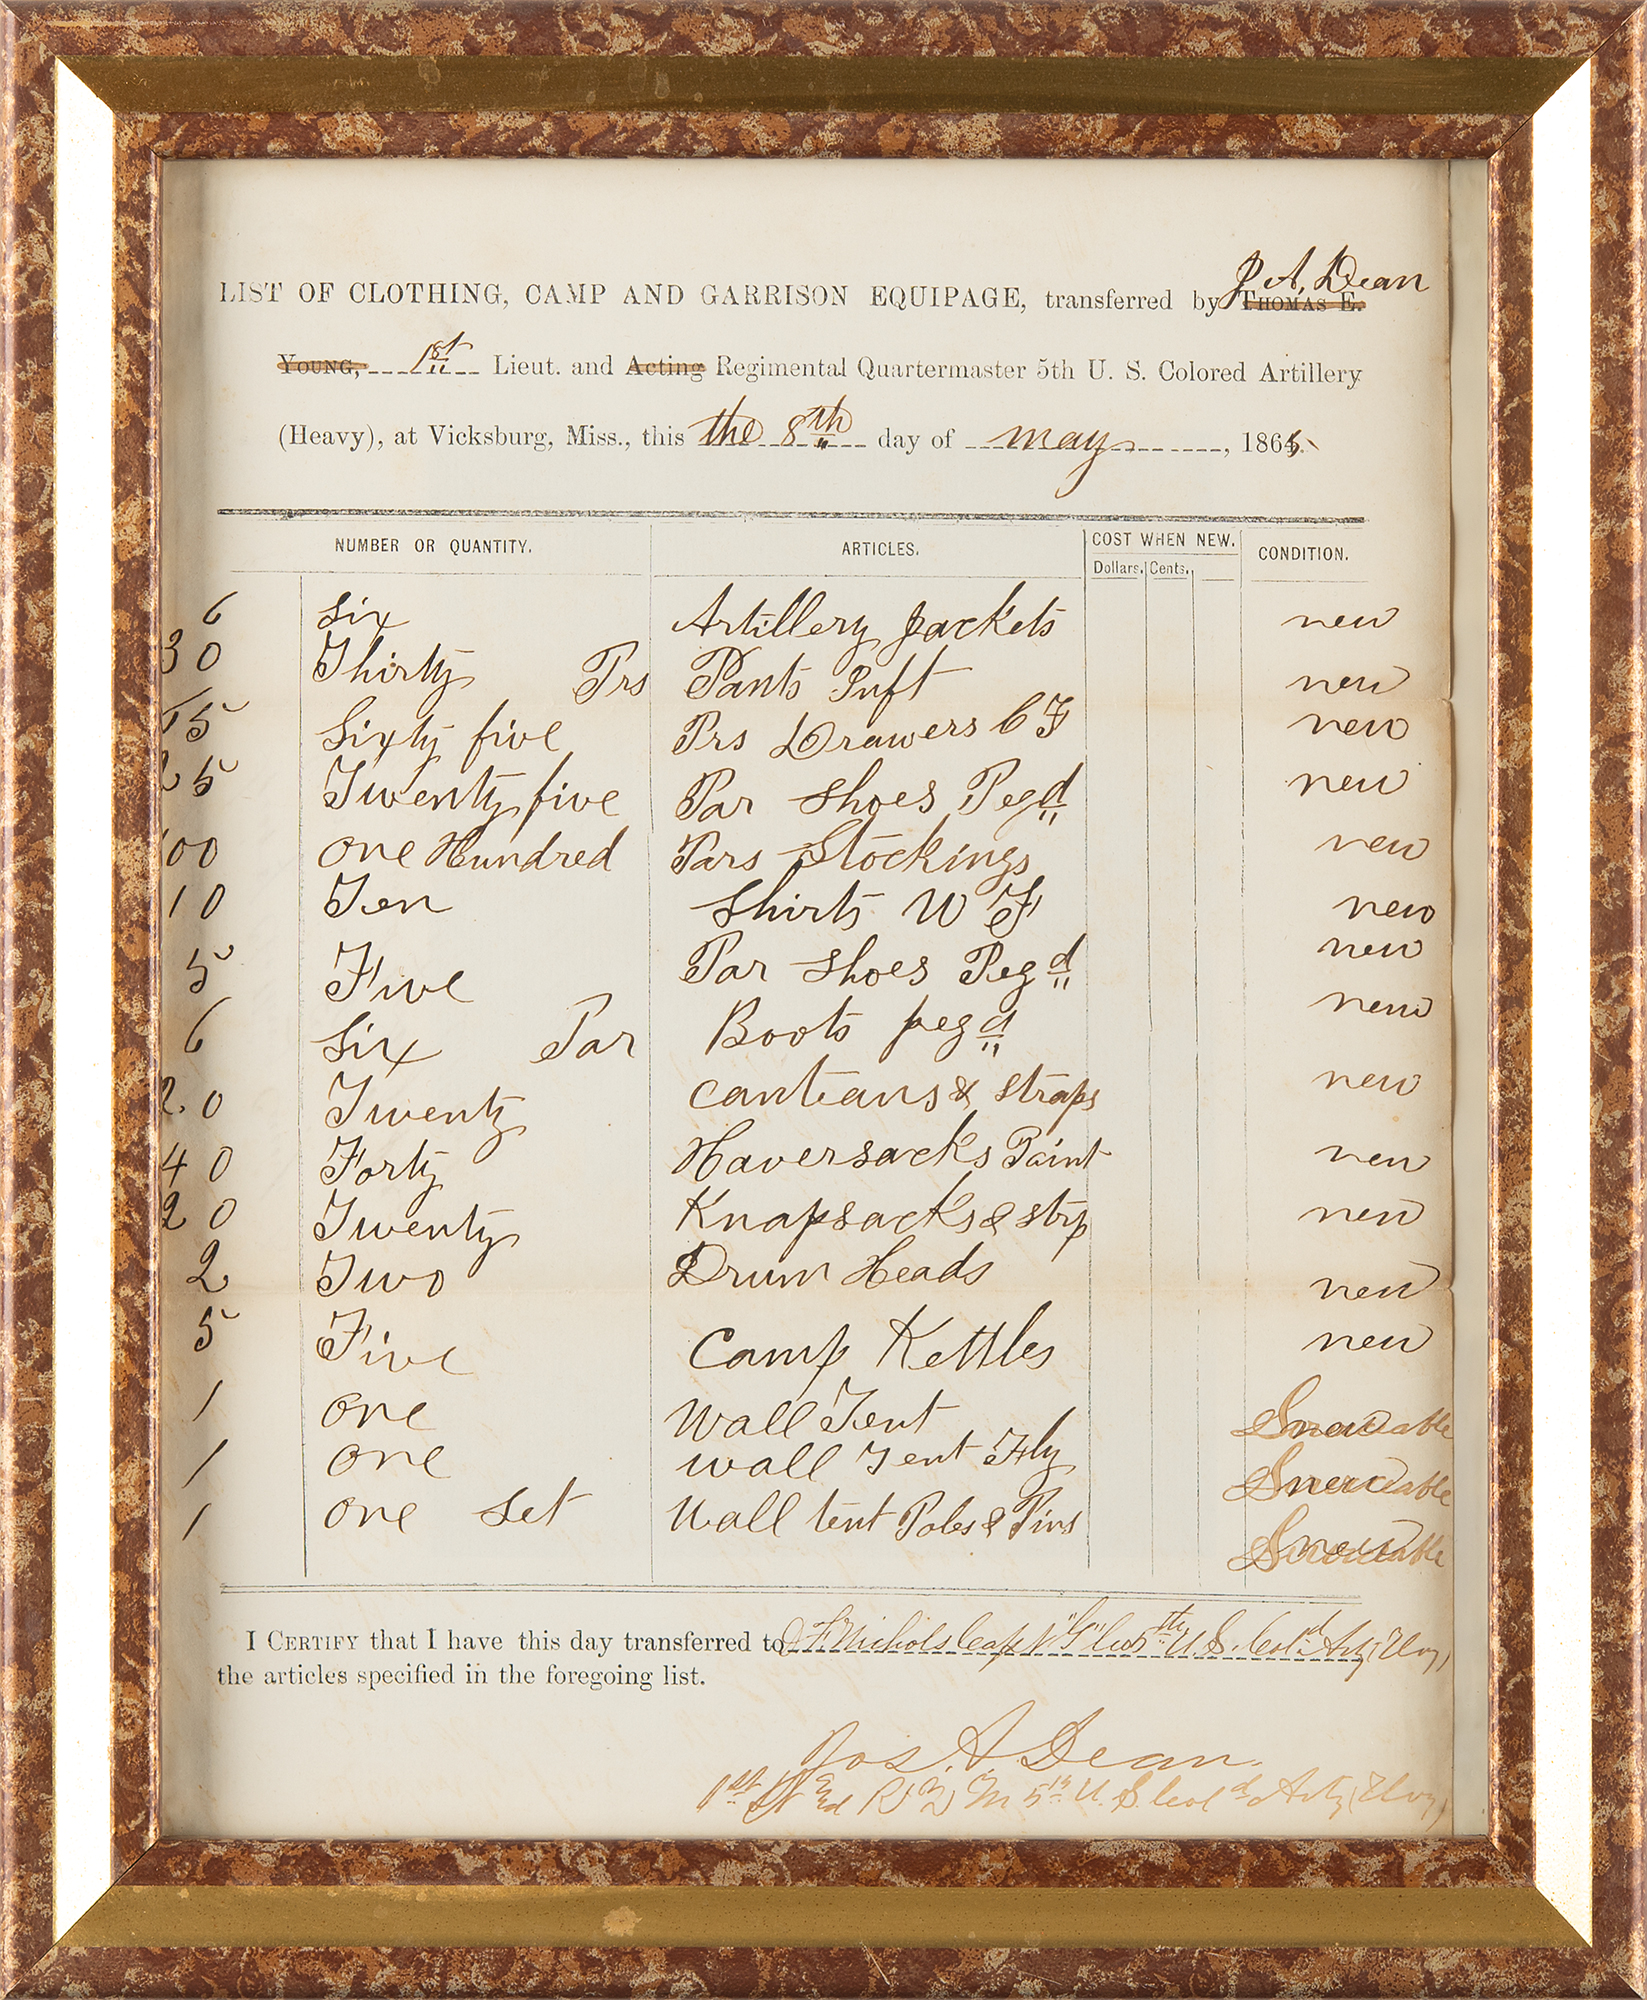 J. A. Dean
LIST OF CLOTHING, CAMP AND GARRISON EQUIPAGE, transferred by THOMAS E.
YOUNG, 1st Lieut. and Acting Regimental Quartermaster 5th U. S. Colored Artillery
(Heavy), at Vicksburg, Miss., this the 8th day of may, 1865.
NUMBER OR QUANTITY. ARTICLES. COST WHEN NEW. CONDITION.
Dollars. Cents.
6 Six Artillery Jackets new
30 Thirty Prs Pants Inft new
65 Sixty five Prs Drawers C F new
25 Twenty five Par Shoes Pegd new
100 One Hundred Pars Stockings new
10 Ten Shirts W F new
5 Five Par Shoes Pegd new
6 Six Par Boots pegd new
20 Twenty canteans & straps new
40 Forty Haversacks Paint new
20 Twenty Knapsacks & strp new
2 Two Drum Heads new
5 Five Camp Kettles new
1 One Wall Tent
1 One wall Tent Fly
1 One Set Wall tent Poles & Pins
I CERTIFY that I have this day transferred to J F Nichols Capt "G" Co 5th U. S. Cold Arty (Hvy)
the articles specified in the foregoing list.
Jos. A. Dean.
1st Lt and R Q M 5th U. S. Cold Arty (Hvy)